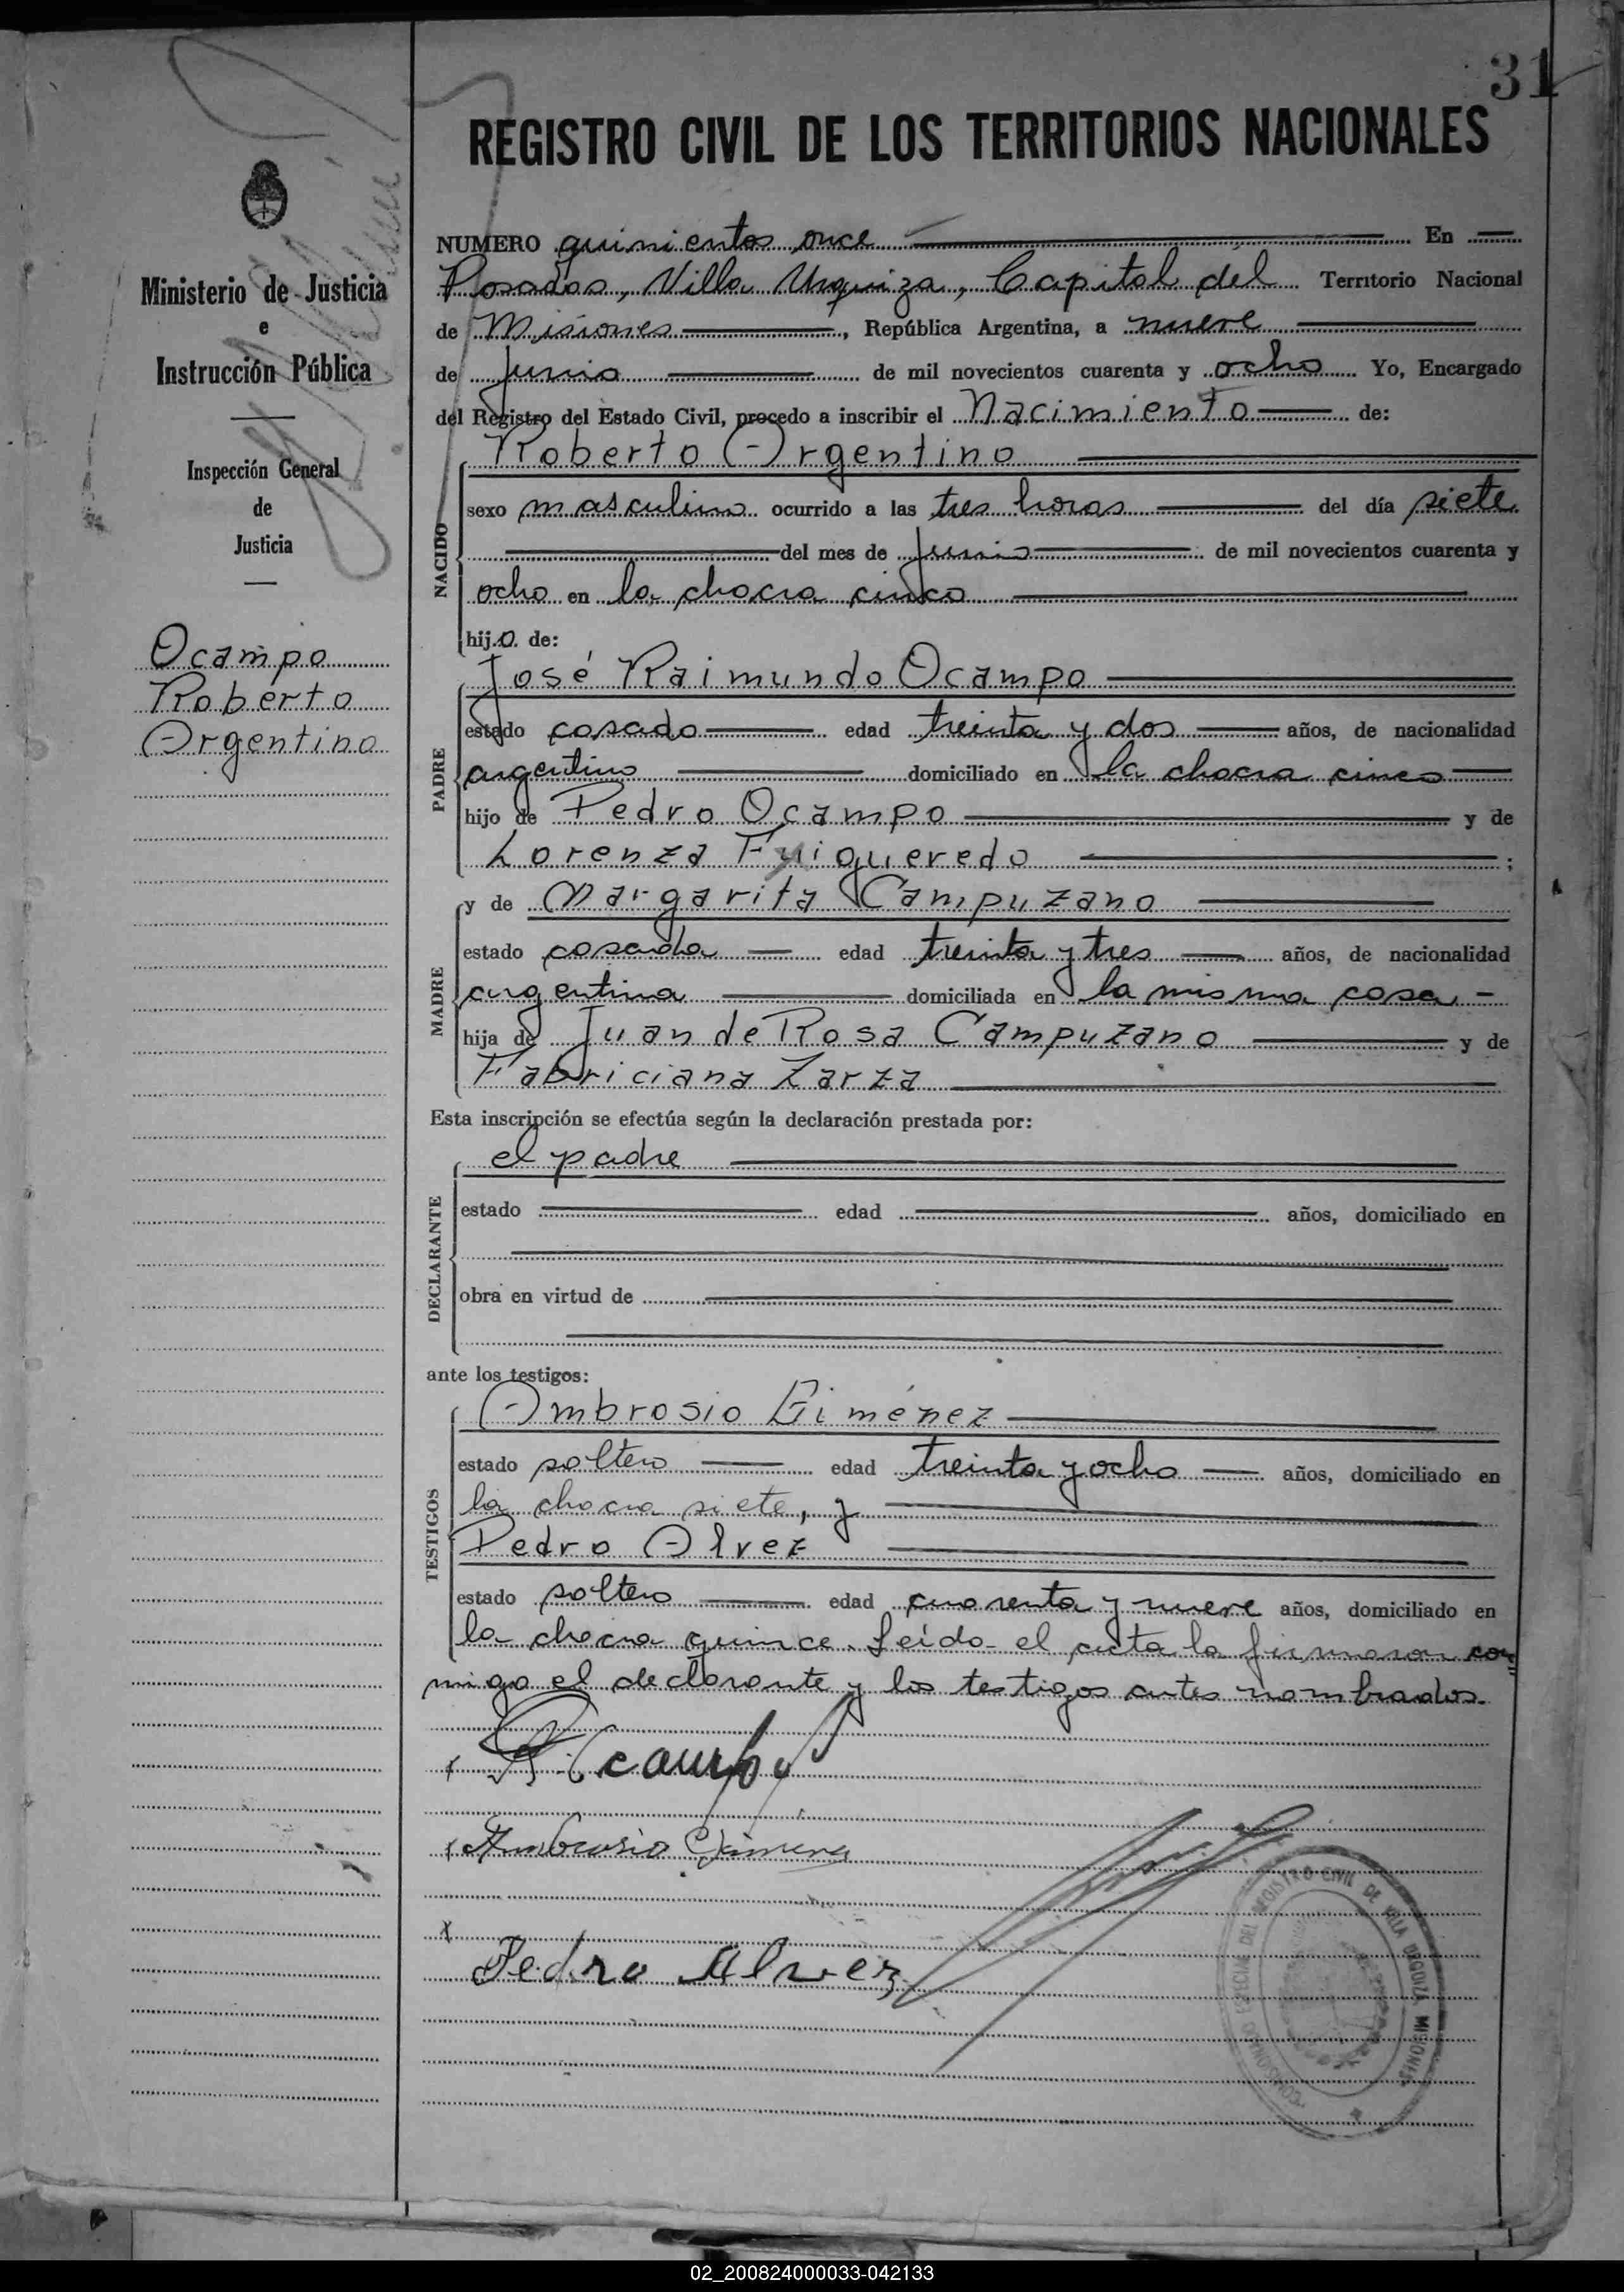 31
REGISTRO CIVIL DE LOS TERRITORIOS NACIONALES
Ministerio de Justicia
e
Instrucción Pública
Inspección General
de
Justicia
Ocampo
Roberto
Argentino
NUMERO quinientos once En
Posadas, Villa Urquiza, Capital del Territorio Nacional
de Misiones, República Argentina, a nueve
de junio de mil novecientos cuarenta y ocho Yo, Encargado
del Registro del Estado Civil, procedo a inscribir el Nacimiento de:
NACIDO
Roberto Argentino
sexo masculino ocurrido a las tres horas del día siete
del mes de junio de mil novecientos cuarenta y
ocho en la chacra cinco
hijo de:
PADRE
José Raimundo Ocampo
estado casado edad treinta y dos años, de nacionalidad
argentino domiciliado en la chacra cinco
hijo de Pedro Ocampo y de
Lorenza Fuigueredo ;
MADRE
y de Margarita Campuzano
estado casada edad treinta y tres años, de nacionalidad
argentina domiciliada en la misma casa -
hija de Juan de Rosa Campuzano y de
Fabriciana Zarza
Esta inscripción se efectúa según la declaración prestada por:
DECLARANTE
el padre
estado edad años, domiciliado en
obra en virtud de
ante los testigos:
TESTIGOS
Ambrosio Giménez
estado soltero edad treinta y ocho años, domiciliado en
la chacra siete, y
Pedro Alvez
estado soltero edad cuarenta y nueve años, domiciliado en
la chacra quince. Leída el acta la firmaron con=
migo el declarante y los testigos antes nombrados.
x Ocampo
x Ambrosio Gimenez
x
Pedro Alvez
COMISIONADO ESPECIAL DEL REGISTRO CIVIL DE VILLA URQUIZA MISIONES
02_200824000033-042133